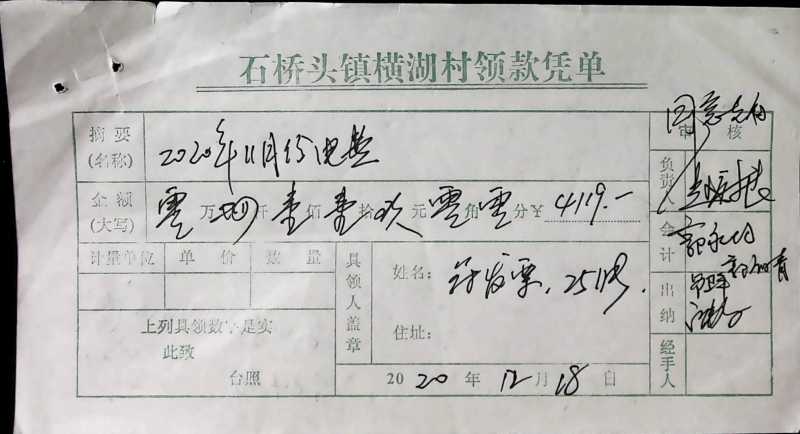 石桥头镇横湖村领款凭单
摘要(名称) 2020年11月份电费
金额(大写) 零万四仟壹佰壹拾玖元零角零分¥ 4119.-
计量单位 单价 数量
上列具领数字是实
此致
台照
具领人盖章
姓名: 付发票,25张.
住址:
2020年12月18日
同意支付
审核
负责人
会计
出纳
经手人